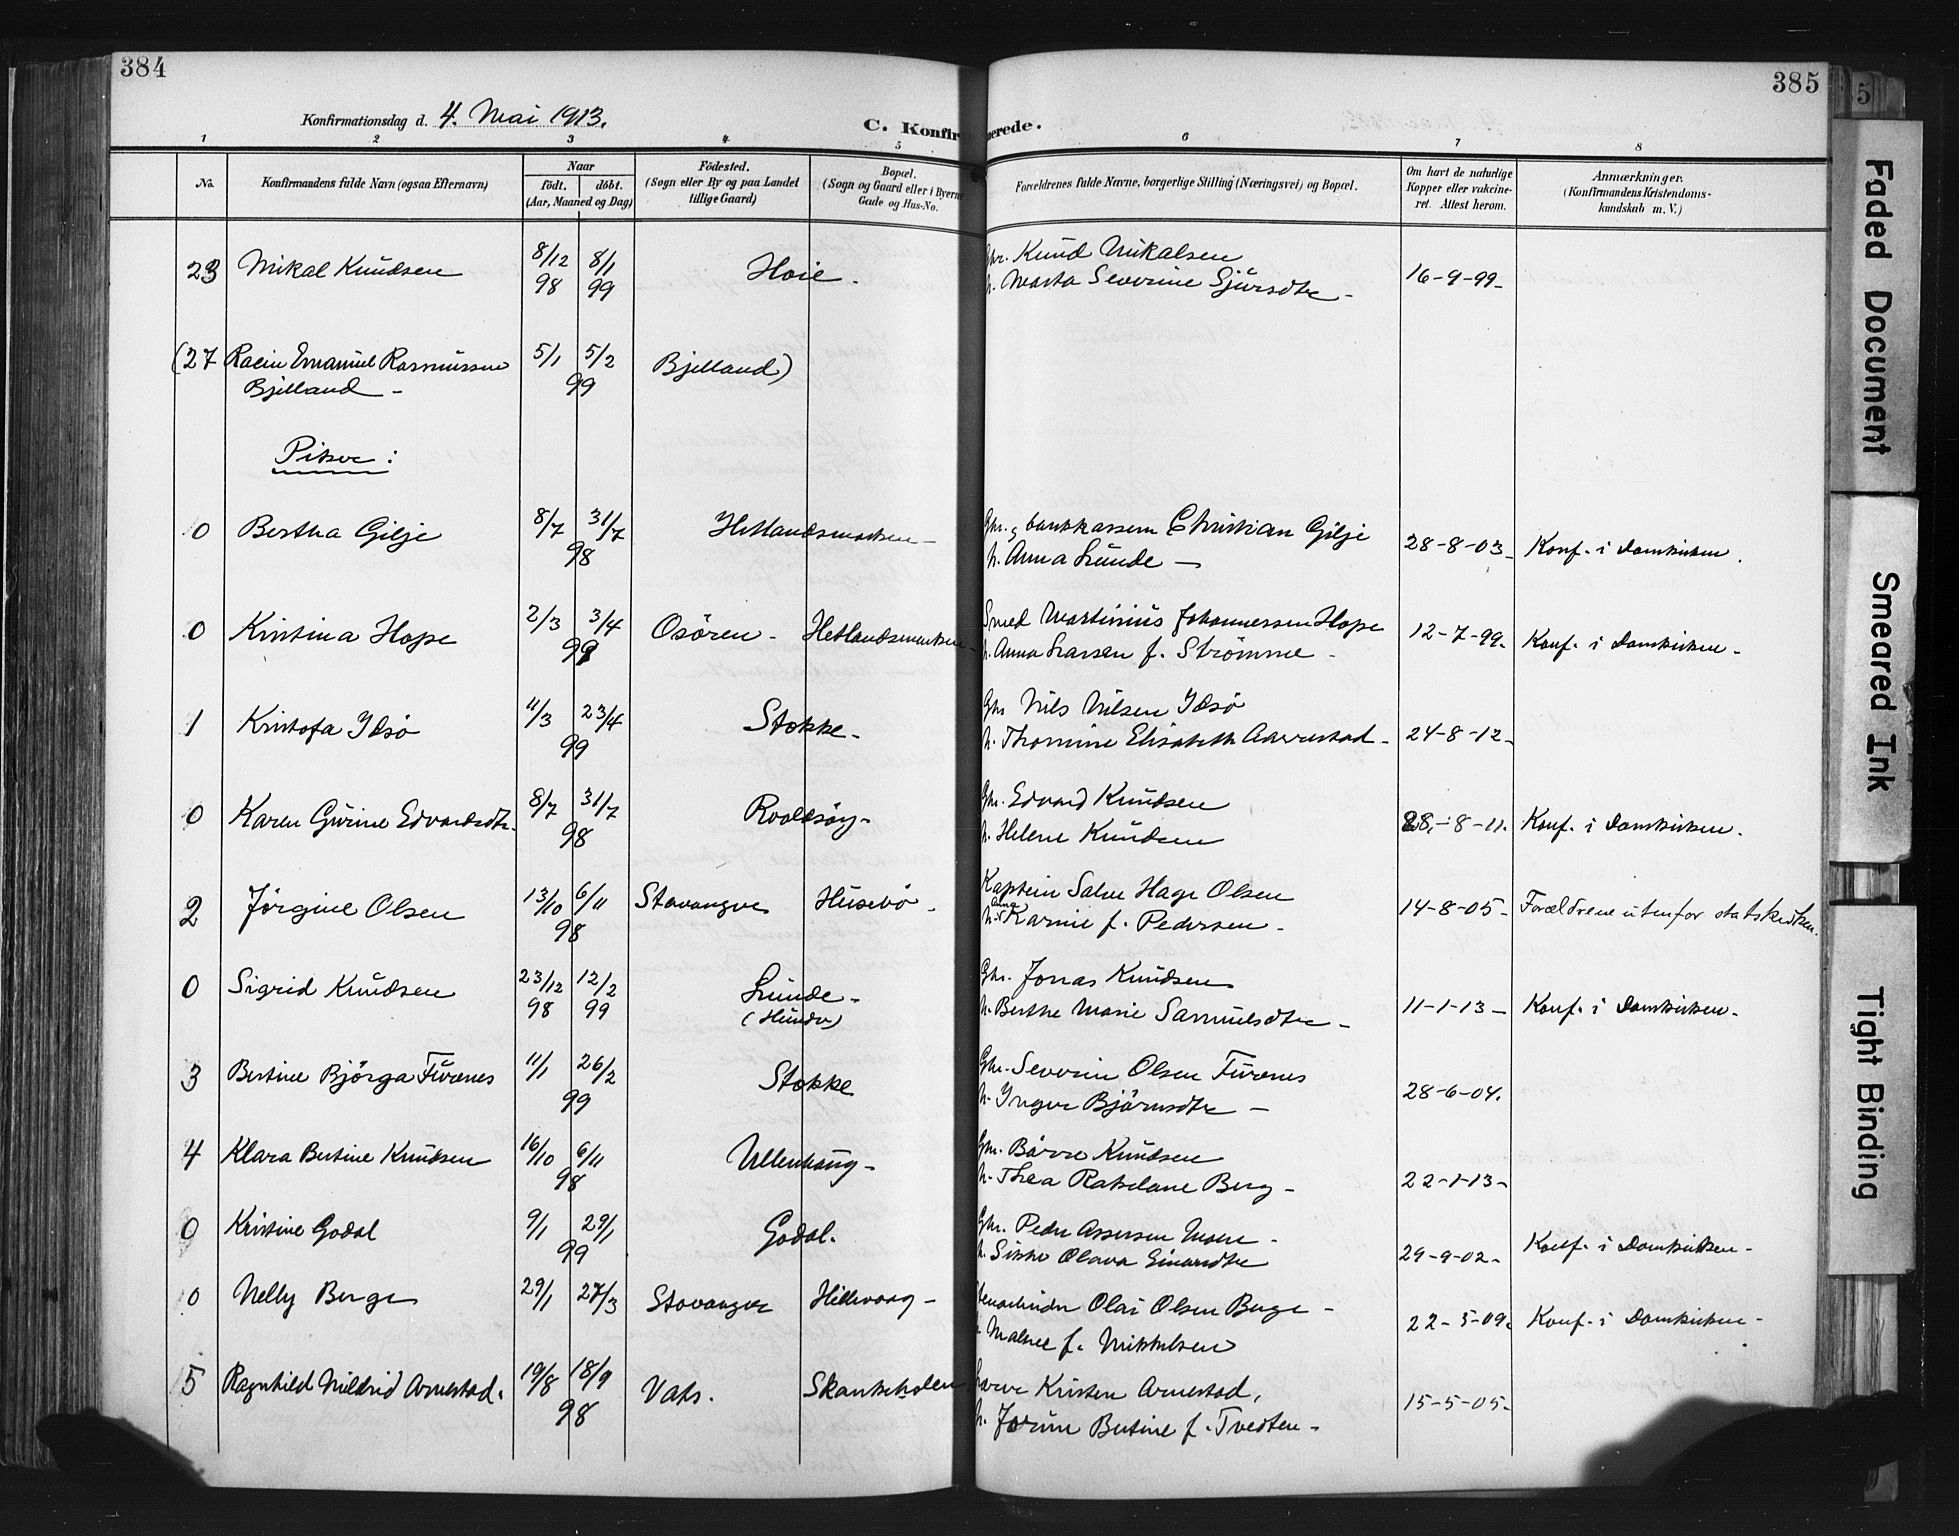 384
385
5
Konfirmationsdag d. 4. Mai 1913.
C. Konfirmerede.
1 2 3 4 5 6 7 8
No.
Konfirmandens fulde Navn (ogsaa Efternavn)
Naar
født. døbt.
(Aar, Maaned og Dag)
Födested.
(Sogn eller By og paa Landet
tillige Gaard)
Bopæl.
(Sogn og Gaard eller i Byerne
Gade og Hus-No.
Forældrenes fulde Navne, borgerlige Stilling (Næringsvei) og Bopæl.
Om havt de naturlige
Kopper eller vakcine-
ret. Attest herom.
Anmærkninger.
(Konfirmandens Kristendoms-
kundskab m. V.)
23 Mikal Knudsen 8/12 98 8/1 99 Høie. Ghr. Knud Mikalsen
h. Marta Severine Sjursdtr - 16-9-99-
(27 Rasmussen 5/1 5/2 99 Bjelland)
Bjelland -
Piker:
0 Bertha Gilje 8/7 31/7 98 Hetlandsmarken - Ghr. & bankkasserer Christian Gilje
h. Anna Lunde - 28-8-03- Konf. i Domkirken.
0 Kristina Hope 2/3 3/4 99 Osören - Hetlandsmarken - Smed Martinius Johannessen Hope
h. Anna Larsen f. Strømme - 12-7-99. Konf. i Domkirken -
1 Kristofa Idsø 11/3 23/4 99 Stokke - Ghr Nils Nilsen Idsø
h. Thomine Elisabeth - 24-8-12-
0 Karen Gurine Edvardsdtr. 8/7 31/7 98 Roaldsöy - Ghr. Edvard Knudsen
h. Helene Knudsen 28-8-11. Konf. i Domkirken.
2 Jörgine Olsen 13/10 6/11 98 Stavanger Husebø. Kaptein Salve Hage Olsen
h. Anna Karine f. Pedersen. 14-8-05- Forældrene utenfor statskirken.
0 Sigrid Knudsen 23/12 98 12/2 99 Lunde - Ghr. Jonas Knudsen
(Hundv) h. Berthe Marie Samuelsdtr - 11-1-13- Konf. i Domkirken -
3 Bertine Bjørga Furenes 11/1 26/2 99 Stokke Ghr. Severin Olsen Furenes
h. Inger Björnsdtr - 28-6-04.
4 Klara Bertine Knudsen 16/10 6/11 98 Ullenhaug - Ghr. Børre Knudsen
h. Thea Berg - 22-1-13-
0 Kristine Godal 9/1 29/1 99 Godal. Ghr. Peder Assersen Moen -
h. Olava Einarsdtr 29-9-02- Konf. i Domkirken -
0 Nelly Berge 29/1 27/3 Stavanger Hillevaag - Olai Olsen Berge -
f. Mikkelsen 22-5-09. Konf. i Domkirken -
5 Ragnhild Mildrid Arnestad. 19/8 18/9 98 Vats. Skankeholen Lærer Kristen Arnestad,
h. Jorun Bertine f. Tvedten - 15-5-05-
Faded Document
Smeared Ink
Tight Binding